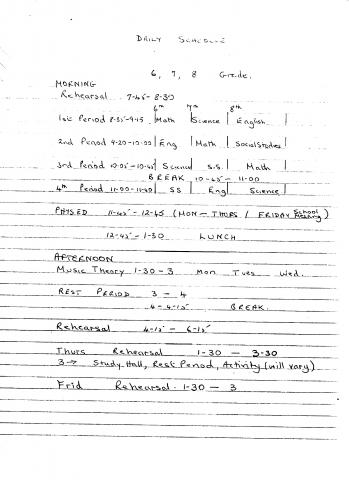 DAILY SCHEDULE
6, 7, 8 Grade.
MORNING
Rehearsal 7-45 - 8-30
6th 7th 8th
1st Period 8-35-9-15 Math Science English
2nd Period 9-20-10-00 Eng Math Social Studies
3rd Period 10-05-10-45 Science S.S. Math
BREAK 10-45 - 11-00
4th Period 11-00-11-40 SS Eng Science
PHYS.ED 11-45 - 12-45 (MON - THURS / FRIDAY School Meeting)
12-45 - 1-30 LUNCH
AFTERNOON
Music Theory 1-30 - 3 Mon Tues Wed.
REST PERIOD 3 - 4
4 - 4-15 BREAK.
Rehearsal 4-15 - 6-15
Thurs Rehearsal 1-30 - 3-30
3 → Study Hall, Rest Period, Activity (will vary)
Frid Rehearsal. 1-30 - 3